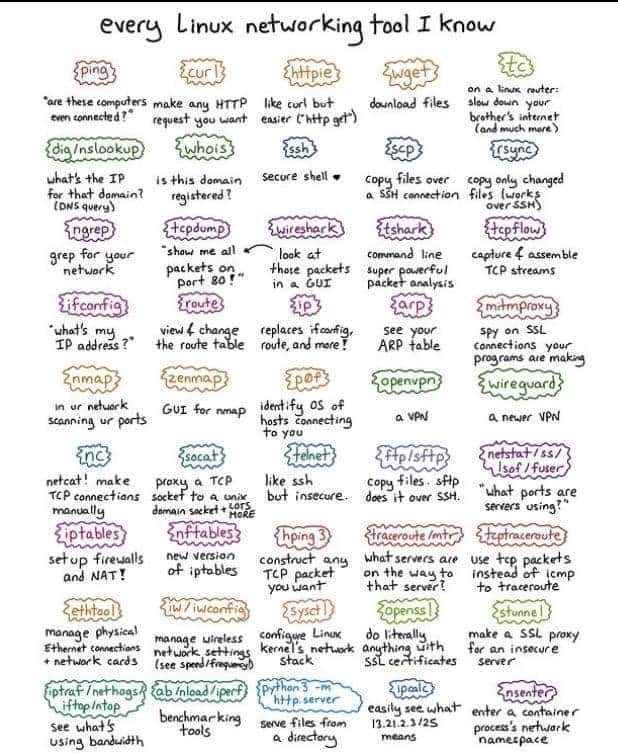 every Linux networking tool I know
ping
"are these computers
even connected?"
curl
make any HTTP
request you want
httpie
like curl but
easier ("http get")
wget
download files
tc
on a linux router:
slow down your
brother's internet
(and much more)
dig/nslookup
what's the IP
for that domain?
(DNS query)
whois
is this domain
registered?
ssh
secure shell ♥
scp
copy files over
a SSH connection
rsync
copy only changed
files (works
over SSH)
ngrep
grep for your
network
tcpdump
"show me all
packets on
port 80!"
wireshark
look at
those packets
in a GUI
tshark
command line
super powerful
packet analysis
tcpflow
capture & assemble
TCP streams
ifconfig
"what's my
IP address?"
route
view & change
the route table
ip
replaces ifconfig,
route, and more!
arp
see your
ARP table
mitmproxy
spy on SSL
connections your
programs are making
nmap
in ur network
scanning ur ports
zenmap
GUI for nmap
p0f
identify OS of
hosts connecting
to you
openvpn
a VPN
wireguard
a newer VPN
nc
netcat! make
TCP connections
manually
socat
proxy a TCP
socket to a unix
domain socket + LOTS
MORE
telnet
like ssh
but insecure.
ftp/sftp
copy files. sftp
does it over SSH.
netstat/ss/
lsof/fuser
"what ports are
servers using?"
iptables
set up firewalls
and NAT!
nftables
new version
of iptables
hping3
construct any
TCP packet
you want
traceroute/mtr
what servers are
on the way to
that server?
tcptraceroute
use tcp packets
instead of icmp
to traceroute
ethtool
manage physical
Ethernet connections
+ network cards
iw/iwconfig
manage wireless
network settings
(see speed/frequency!)
sysctl
configure Linux
kernel's network
stack
openssl
do literally
anything with
SSL certificates
stunnel
make a SSL proxy
for an insecure
server
iptraf/nethogs/
iftop/ntop
see what's
using bandwidth
ab/nload/iperf
benchmarking
tools
python3 -m
http.server
serve files from
a directory
ipcalc
easily see what
13.21.2.3/25
means
nsenter
enter a container
process's network
namespace